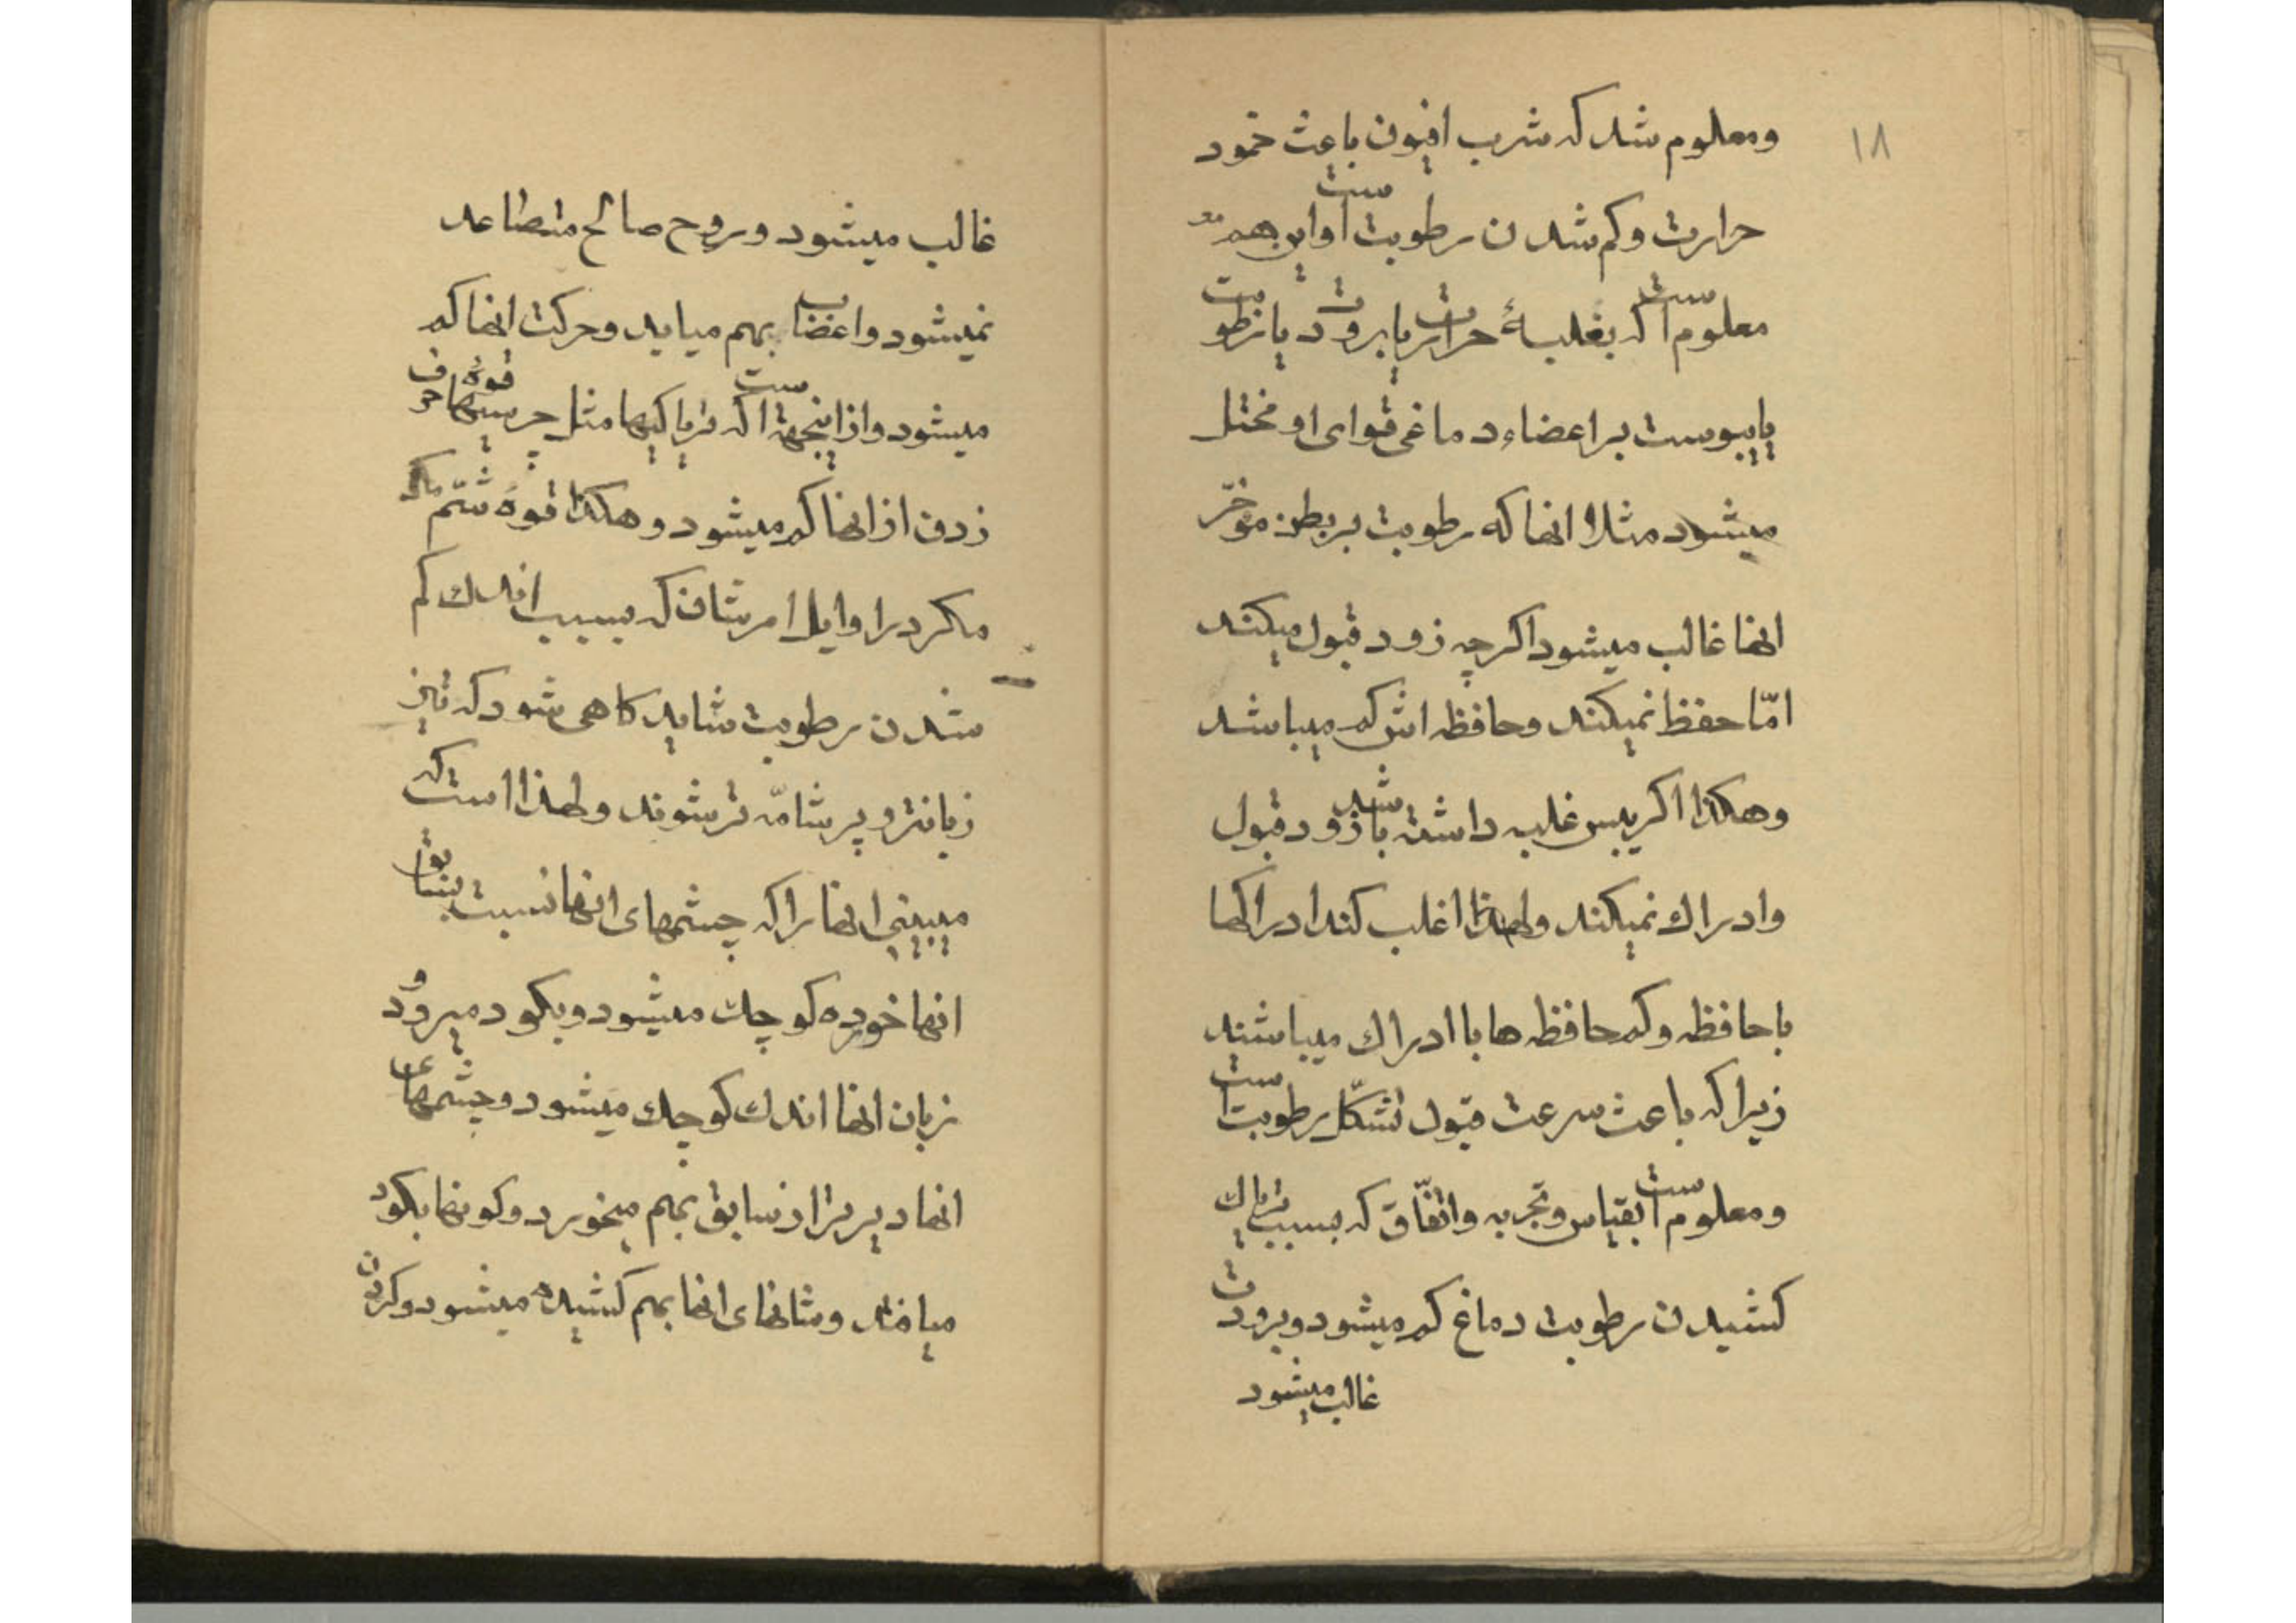 ۱۸
ومعلوم شد که شرب افیون باعث خمود
حرارت وکم شدن رطوبت است واین هم
معلوم است که بغلبهٔ حرارت یا برودت یا رطوبت
یا یبوست بر اعضاء دماغی قوای او مختل
میشود مثلا انها که رطوبت بر بطن مؤخّر
انها غالب میشود اکرچه زود قبول میکنند
امّا حفظ نمیکنند وحافظه اش کم میباشد
وهکذا اکر یبس غلبه داشته باشد زود قبول
وادراك نمیکند ولهذا اغلب کند ادراکها
با حافظه وکم حافظه ها با ادراك میباشند
زیرا که باعث سرعت قبول تشکّل رطوبت است
ومعلوم است بقیاس وتجربه واتفّاق که بسبب تریاك
کشیدن رطوبت دماغ کم میشود وبرودت
غالب میشود
غالب میشود وروح صالح متصاعد
نمیشود واعضاب بهم میاید وحرکت انها کم
میشود واز اینجهة است که تریاکیها مثل چرسیها قوهٔ حرف
زدن از انها کم میشود وهکذا قوهٔ شمّ
مکر در اوایل امرشان که بسبب اندك کم
شدن رطوبت شاید کاهی شود که تیز
زبانتر و پر شامّه تر شوند ولهذا است که
میبینی انها را که چشمهای انها نسبت بسابق
انها خورده کوچك میشود وبکود میرود و
زبان انها اندك کوچك میشود وچشمهای
انها دیرتر از سابق بهم میخورد وکونها بکود
میافتد وشانهای انها بهم کشیده میشود وکردن